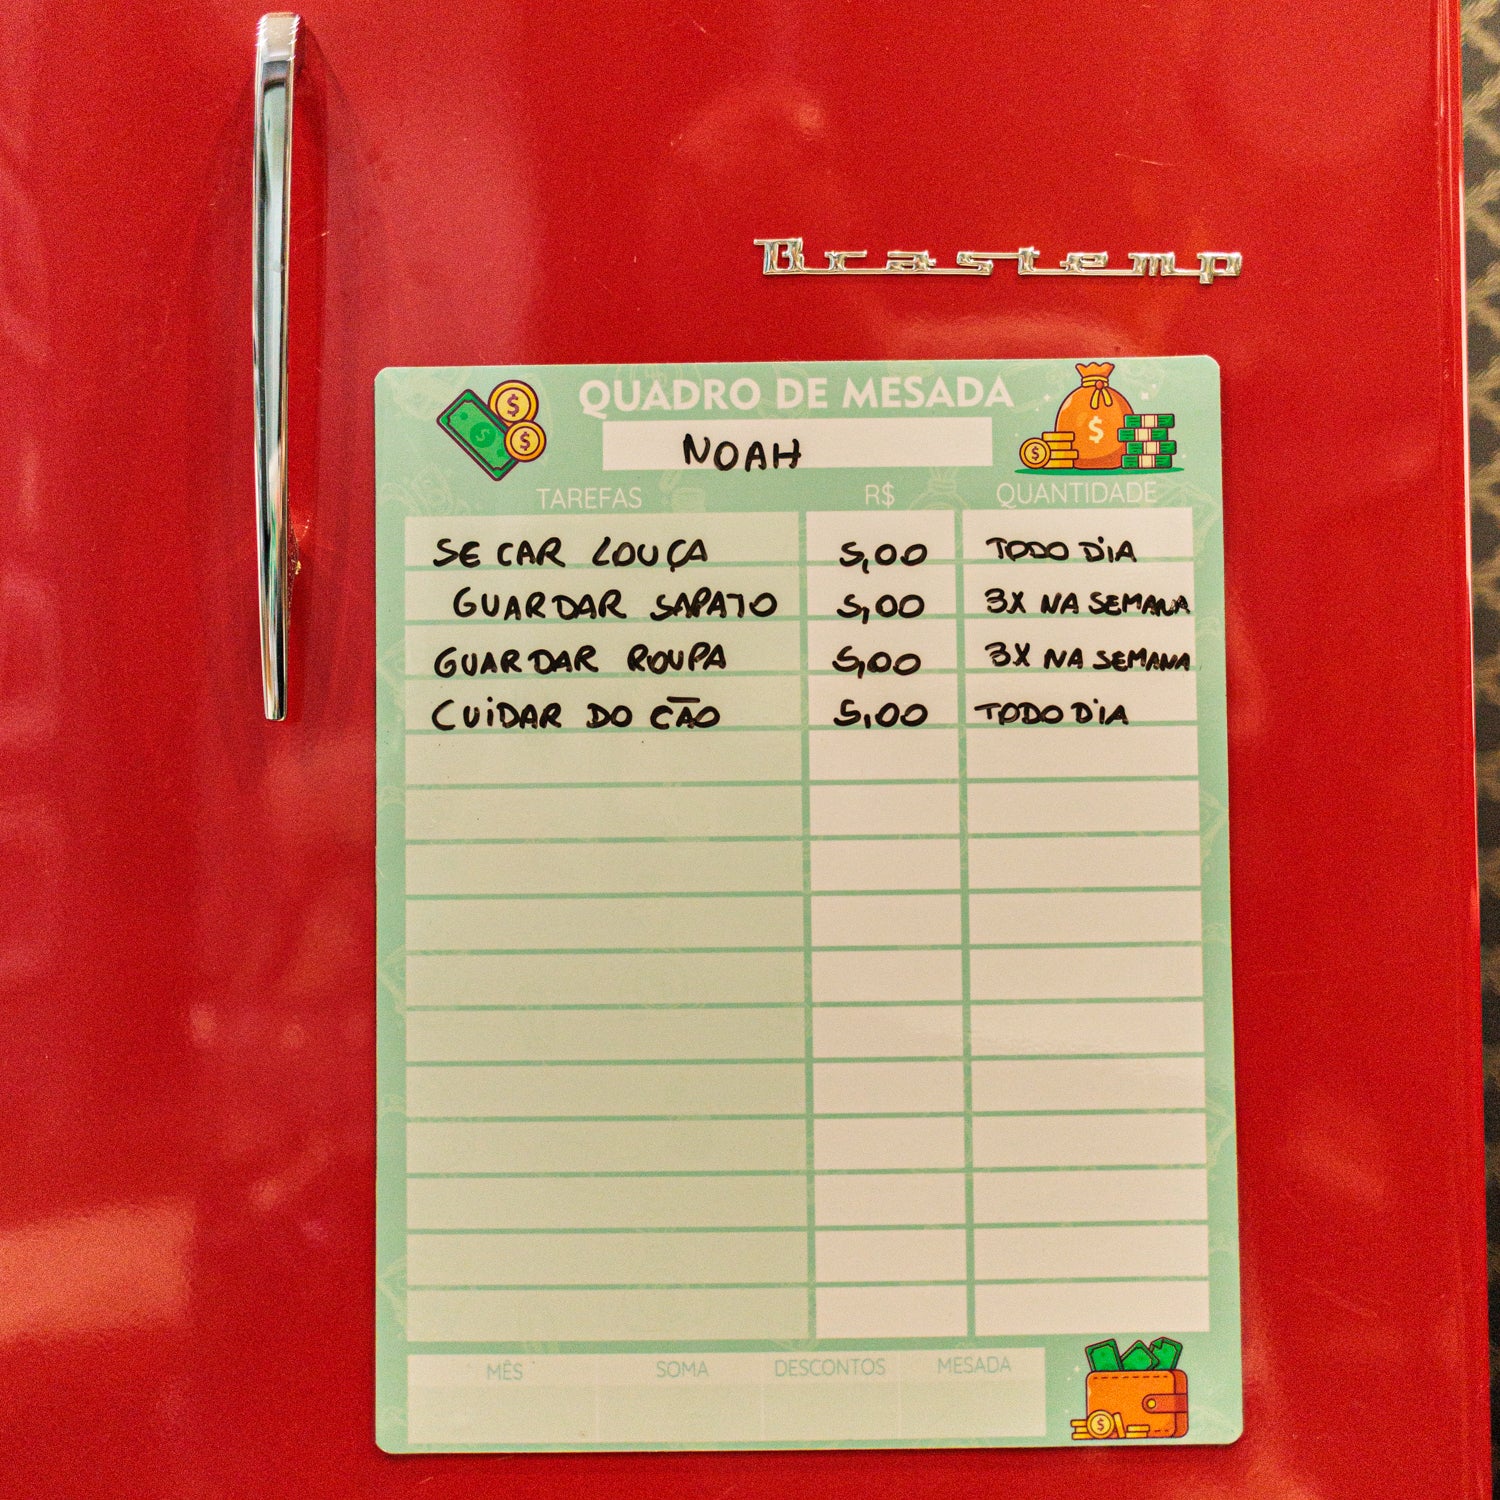 Brastemp
QUADRO DE MESADA
NOAH
TAREFAS R$ QUANTIDADE
SECAR LOUÇA 5,00 TODO DIA
GUARDAR SAPATO 5,00 3X NA SEMANA
GUARDAR ROUPA 5,00 3X NA SEMANA
CUIDAR DO CÃO 5,00 TODO DIA
MÊS SOMA DESCONTOS MESADA